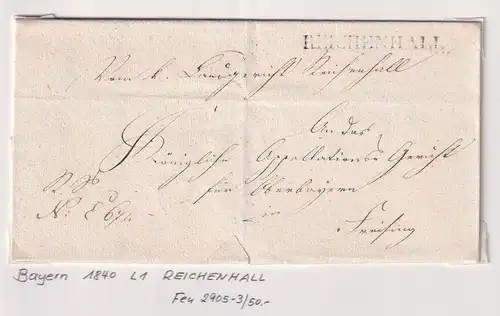 REICHENHALL.
Vom k. Landgericht Reichenhall
An das
Königliche Appellations Gericht
R. S.
für Oberbayern
No: E 671.
in
Freising
Bayern 1840 L1 REICHENHALL
Feu 2905-3/50.-